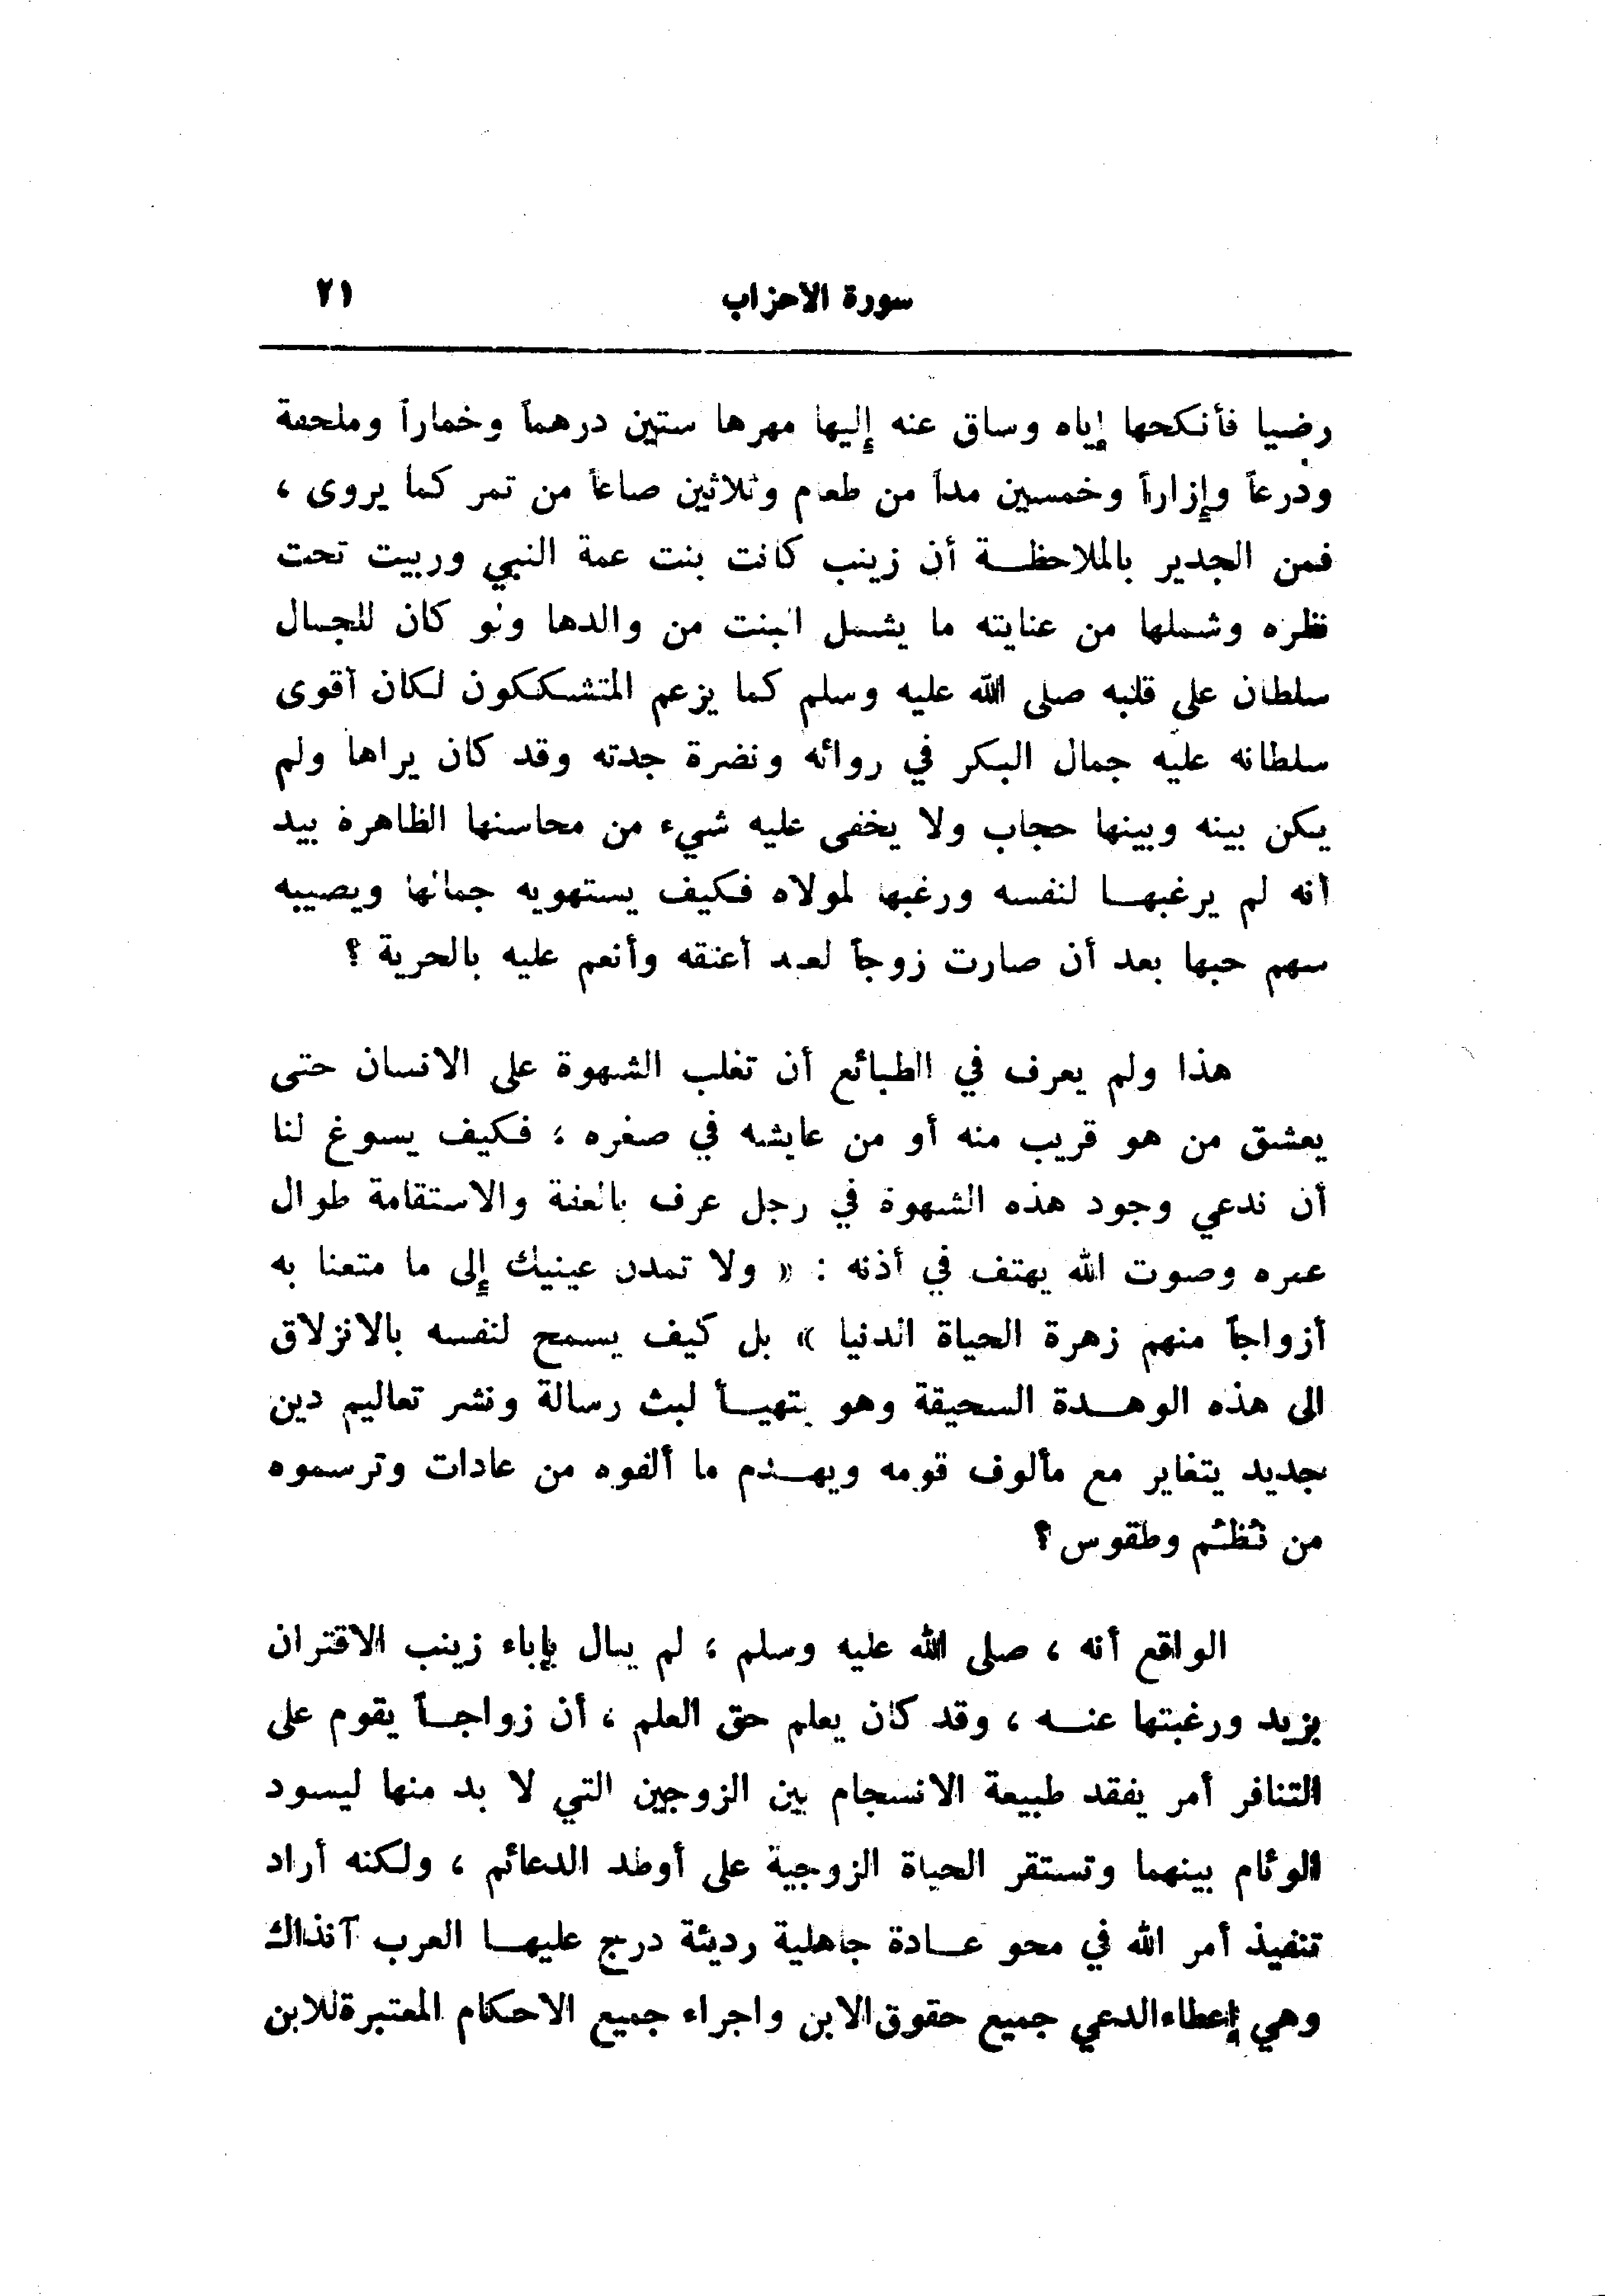 سورة الاحزاب ٢١
رضيا فأنكحها إياه وساق عنه إليها مهرها ستين درهماً وخماراً وملحفة
ودرعاً وإزاراً وخمسين مداً من طعام وثلاثين صاعاً من تمر كما يروى ،
فمن الجدير بالملاحظة أن زينب كانت بنت عمة النبي وربيت تحت
نظره وشملها من عنايته ما يشمل البنت من والدها ولو كان للجمال
سلطان على قلبه صلى الله عليه وسلم كما يزعم المتشككون لكان أقوى
سلطانه عليه جمال البكر في روائه ونضرة جدته وقد كان يراها ولم
يكن بينه وبينها حجاب ولا يخفى عليه شيء من محاسنها الظاهرة بيد
أنه لم يرغبها لنفسه ورغبها لمولاه فكيف يستهويه جمالها ويصيبه
سهم حبها بعد أن صارت زوجاً لعبد أعتقه وأنعم عليه بالحرية ؟
هذا ولم يعرف في الطبائع أن تغلب الشهوة على الانسان حتى
يعشق من هو قريب منه أو من عايشه في صغره ؛ فكيف يسوغ لنا
أن ندعي وجود هذه الشهوة في رجل عرف بالعفة والاستقامة طوال
عمره وصوت الله يهتف في أذنه : « ولا تمدن عينيك إلى ما متعنا به
أزواجاً منهم زهرة الحياة الدنيا » بل كيف يسمح لنفسه بالانزلاق
الى هذه الوهدة السحيقة وهو يتهيأ لبث رسالة ونشر تعاليم دين
جديد يتغاير مع مألوف قومه ويهدم ما ألفوه من عادات وترسموه
من نُظُم وطقوس ؟
الواقع أنه ، صلى الله عليه وسلم ؛ لم يبال بإباء زينب الاقتران
بزيد ورغبتها عنه ، وقد كان يعلم حق العلم ، أن زواجاً يقوم على
التنافر أمر يفقد طبيعة الانسجام بين الزوجين التي لا بد منها ليسود
الوئام بينهما وتستقر الحياة الزوجية على أوطد الدعائم ، ولكنه أراد
تنفيذ أمر الله في محو عادة جاهلية رديئة درج عليها العرب آنذاك
وهي إعطاء الدعي جميع حقوق الابن واجراء جميع الاحكام المعتبرة للابن